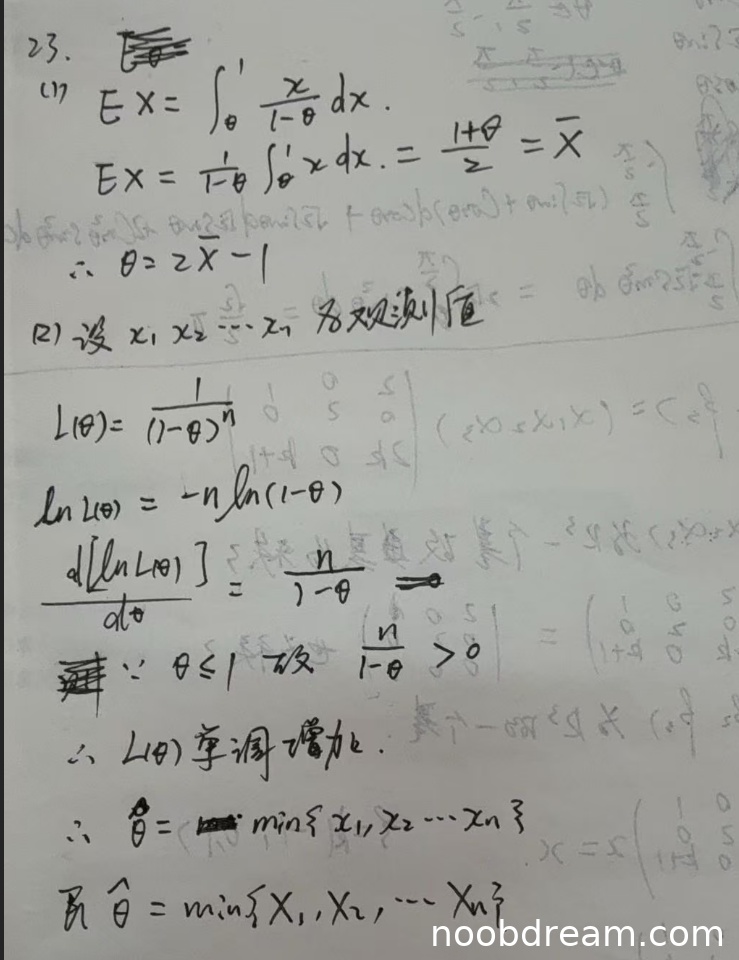 23.
(1) EX = ∫_θ^1 x/(1-θ) dx.
EX = 1/(1-θ) ∫_θ^1 x dx. = (1+θ)/2 = X̄
∴ θ = 2X̄ - 1
(2) 设 x₁ x₂ ⋯ xₙ 为观测值
L(θ) = 1/(1-θ)ⁿ
ln L(θ) = -n ln(1-θ)
d[ln L(θ)]/dθ = n/(1-θ)
∵ θ ≤ 1 故 n/(1-θ) > 0
∴ L(θ) 单调增加.
∴ θ̂ = min{x₁, x₂ ⋯ xₙ}
则 θ̂ = min{X₁, X₂, ⋯ Xₙ}
noobdream.com